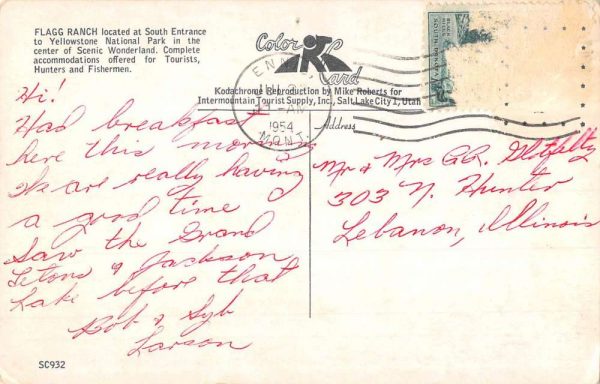 FLAGG RANCH located at South Entrance
to Yellowstone National Park in the
center of Scenic Wonderland. Complete
accommodations offered for Tourists,
Hunters and Fishermen.
Color
Card
Kodachrome Reproduction by Mike Roberts for
Intermountain Tourist Supply, Inc., Salt Lake City 1, Utah
ENNIS
AM
1954
MONT.
BLACK HILLS
SOUTH DAKOTA
Address
Hi!
Had breakfast
here this morning
We are really having
a good time
Saw the Grand
Tetons & Jackson
Lake before that
Bob & Syb
Larson
Mr & Mrs
303 N. Hunter
Lebanon, Illinois
SC932